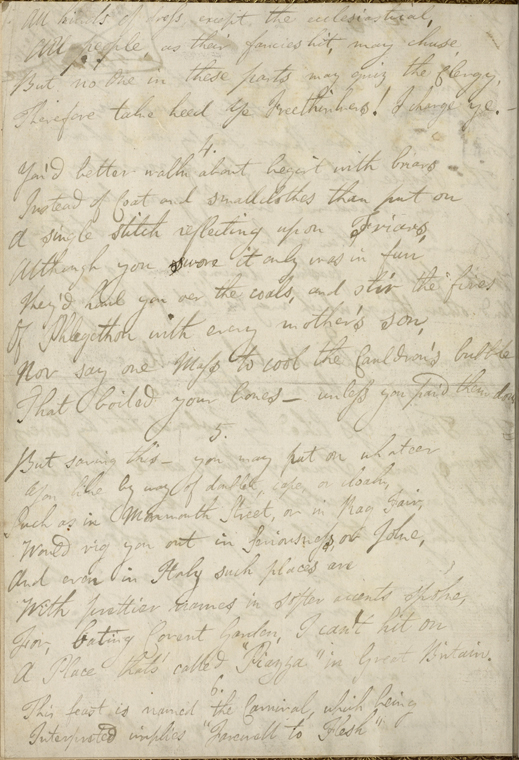 All kinds of dress, except the ecclesiastical,
All people, as their fancies hit, may chuse,
But no one in these parts may quiz the Clergy,
Therefore take heed Ye Freethinkers! I charge ye. —
4.
You'd better walk about begirt with briars
Instead of Coat and smallclothes than put on
A single stitch reflecting upon Friars,
Although you swore it only was in fun
They'd haul you oer the coals, and stir the fires
Of Phlegethon with every mother's son,
Nor say one Mass to cool the Cauldron's bubble
That boiled your bones — unless you paid them
5.
But saving this — you may put on whateer
You like by way of doublet, cape, or cloak,
Such as in Monmouth Street, or in Rag Fair,
Would rig you out in Seriousness or Joke,
And even in Italy such places are
With prettier names in softer accents spoke,
For, bating Covent Garden, I can't hit on
A Place that's called "Piazza" in Great Britain.
6.
This feast is named the Carnival, which being
Interpreted implies "Farewell to Flesh"